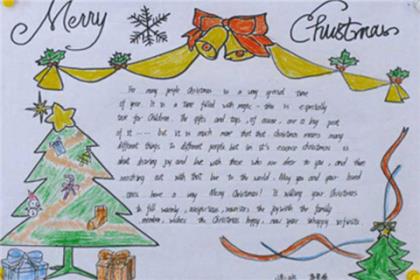 Merry Christmas
For many people Christmas is a very special time
of year. It is a time filled with magic - this is especially
true for children. The gifts and toys, of course, are a big part
of it ---- but it is much more that that christmas means many
different things to different people but in it's essence christmas is
about sharing joy and love with those who are dear to you, and then
reaching out with that love to the world. May you and your loved
ones have a very Merry Christmas! Is willing your Christmas
to fill warmly, auspicious, receives the joy with the family
member, wishes the Christmas happy, new year